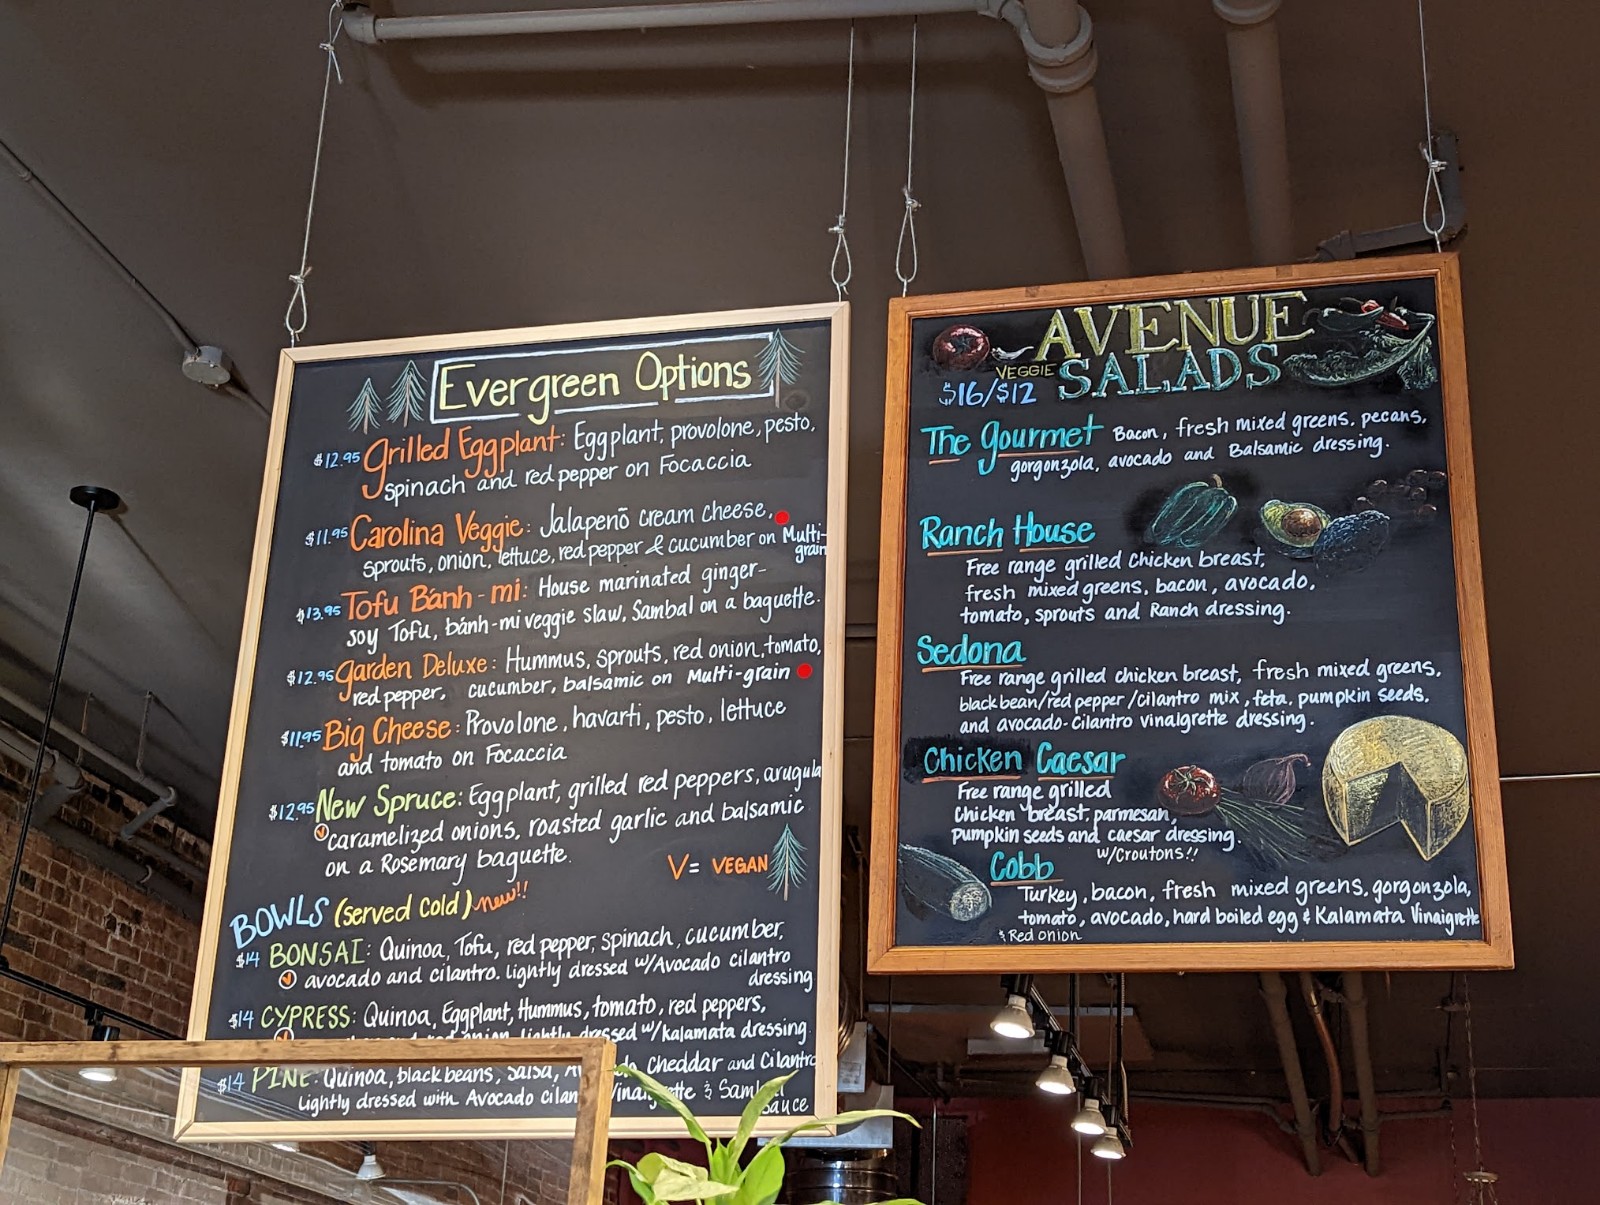 Evergreen Options
$12.95 Grilled Eggplant: Eggplant, provolone, pesto,
spinach and red pepper on Focaccia
$11.95 Carolina Veggie: Jalapenõ cream cheese,
sprouts, onion, lettuce, red pepper & cucumber on Multi-
grain
$13.95 Tofu Bánh-mi: House marinated ginger-
soy Tofu, bánh-mi veggie slaw, Sambal on a baguette.
$12.95 Garden Deluxe: Hummus, sprouts, red onion, tomato,
red pepper, cucumber, balsamic on Multi-grain
$11.95 Big Cheese: Provolone, havarti, pesto, lettuce
and tomato on Focaccia
$12.95 New Spruce: Eggplant, grilled red peppers, arugula
V caramelized onions, roasted garlic and balsamic
on a Rosemary baguette.
V = VEGAN
BOWLS (served cold) new!!
$14 BONSAI: Quinoa, Tofu, red pepper, spinach, cucumber,
V avocado and cilantro. Lightly dressed w/Avocado cilantro
dressing
$14 CYPRESS: Quinoa, Eggplant, Hummus, tomato, red peppers,
and red onion. Lightly dressed w/kalamata dressing.
$14 PINE: Quinoa, black beans, Salsa, Cheddar and Cilantro
Lightly dressed with Avocado Vinaigrette & Sauce
AVENUE
VEGGIE SALADS
$16/$12
The Gourmet Bacon, fresh mixed greens, pecans,
gorgonzola, avocado and Balsamic dressing.
Ranch House
Free range grilled Chicken breast,
fresh mixed greens, bacon, avocado,
tomato, sprouts and Ranch dressing.
Sedona
Free range grilled chicken breast, fresh mixed greens,
black bean/red pepper/cilantro mix, feta, pumpkin seeds,
and avocado-cilantro vinaigrette dressing.
Chicken Caesar
Free range grilled
Chicken breast, parmesan,
Pumpkin seeds and caesar dressing.
w/croutons!!
Cobb
Turkey, bacon, fresh mixed greens, gorgonzola,
tomato, avocado, hard boiled egg & Kalamata Vinaigrette
& Red onion